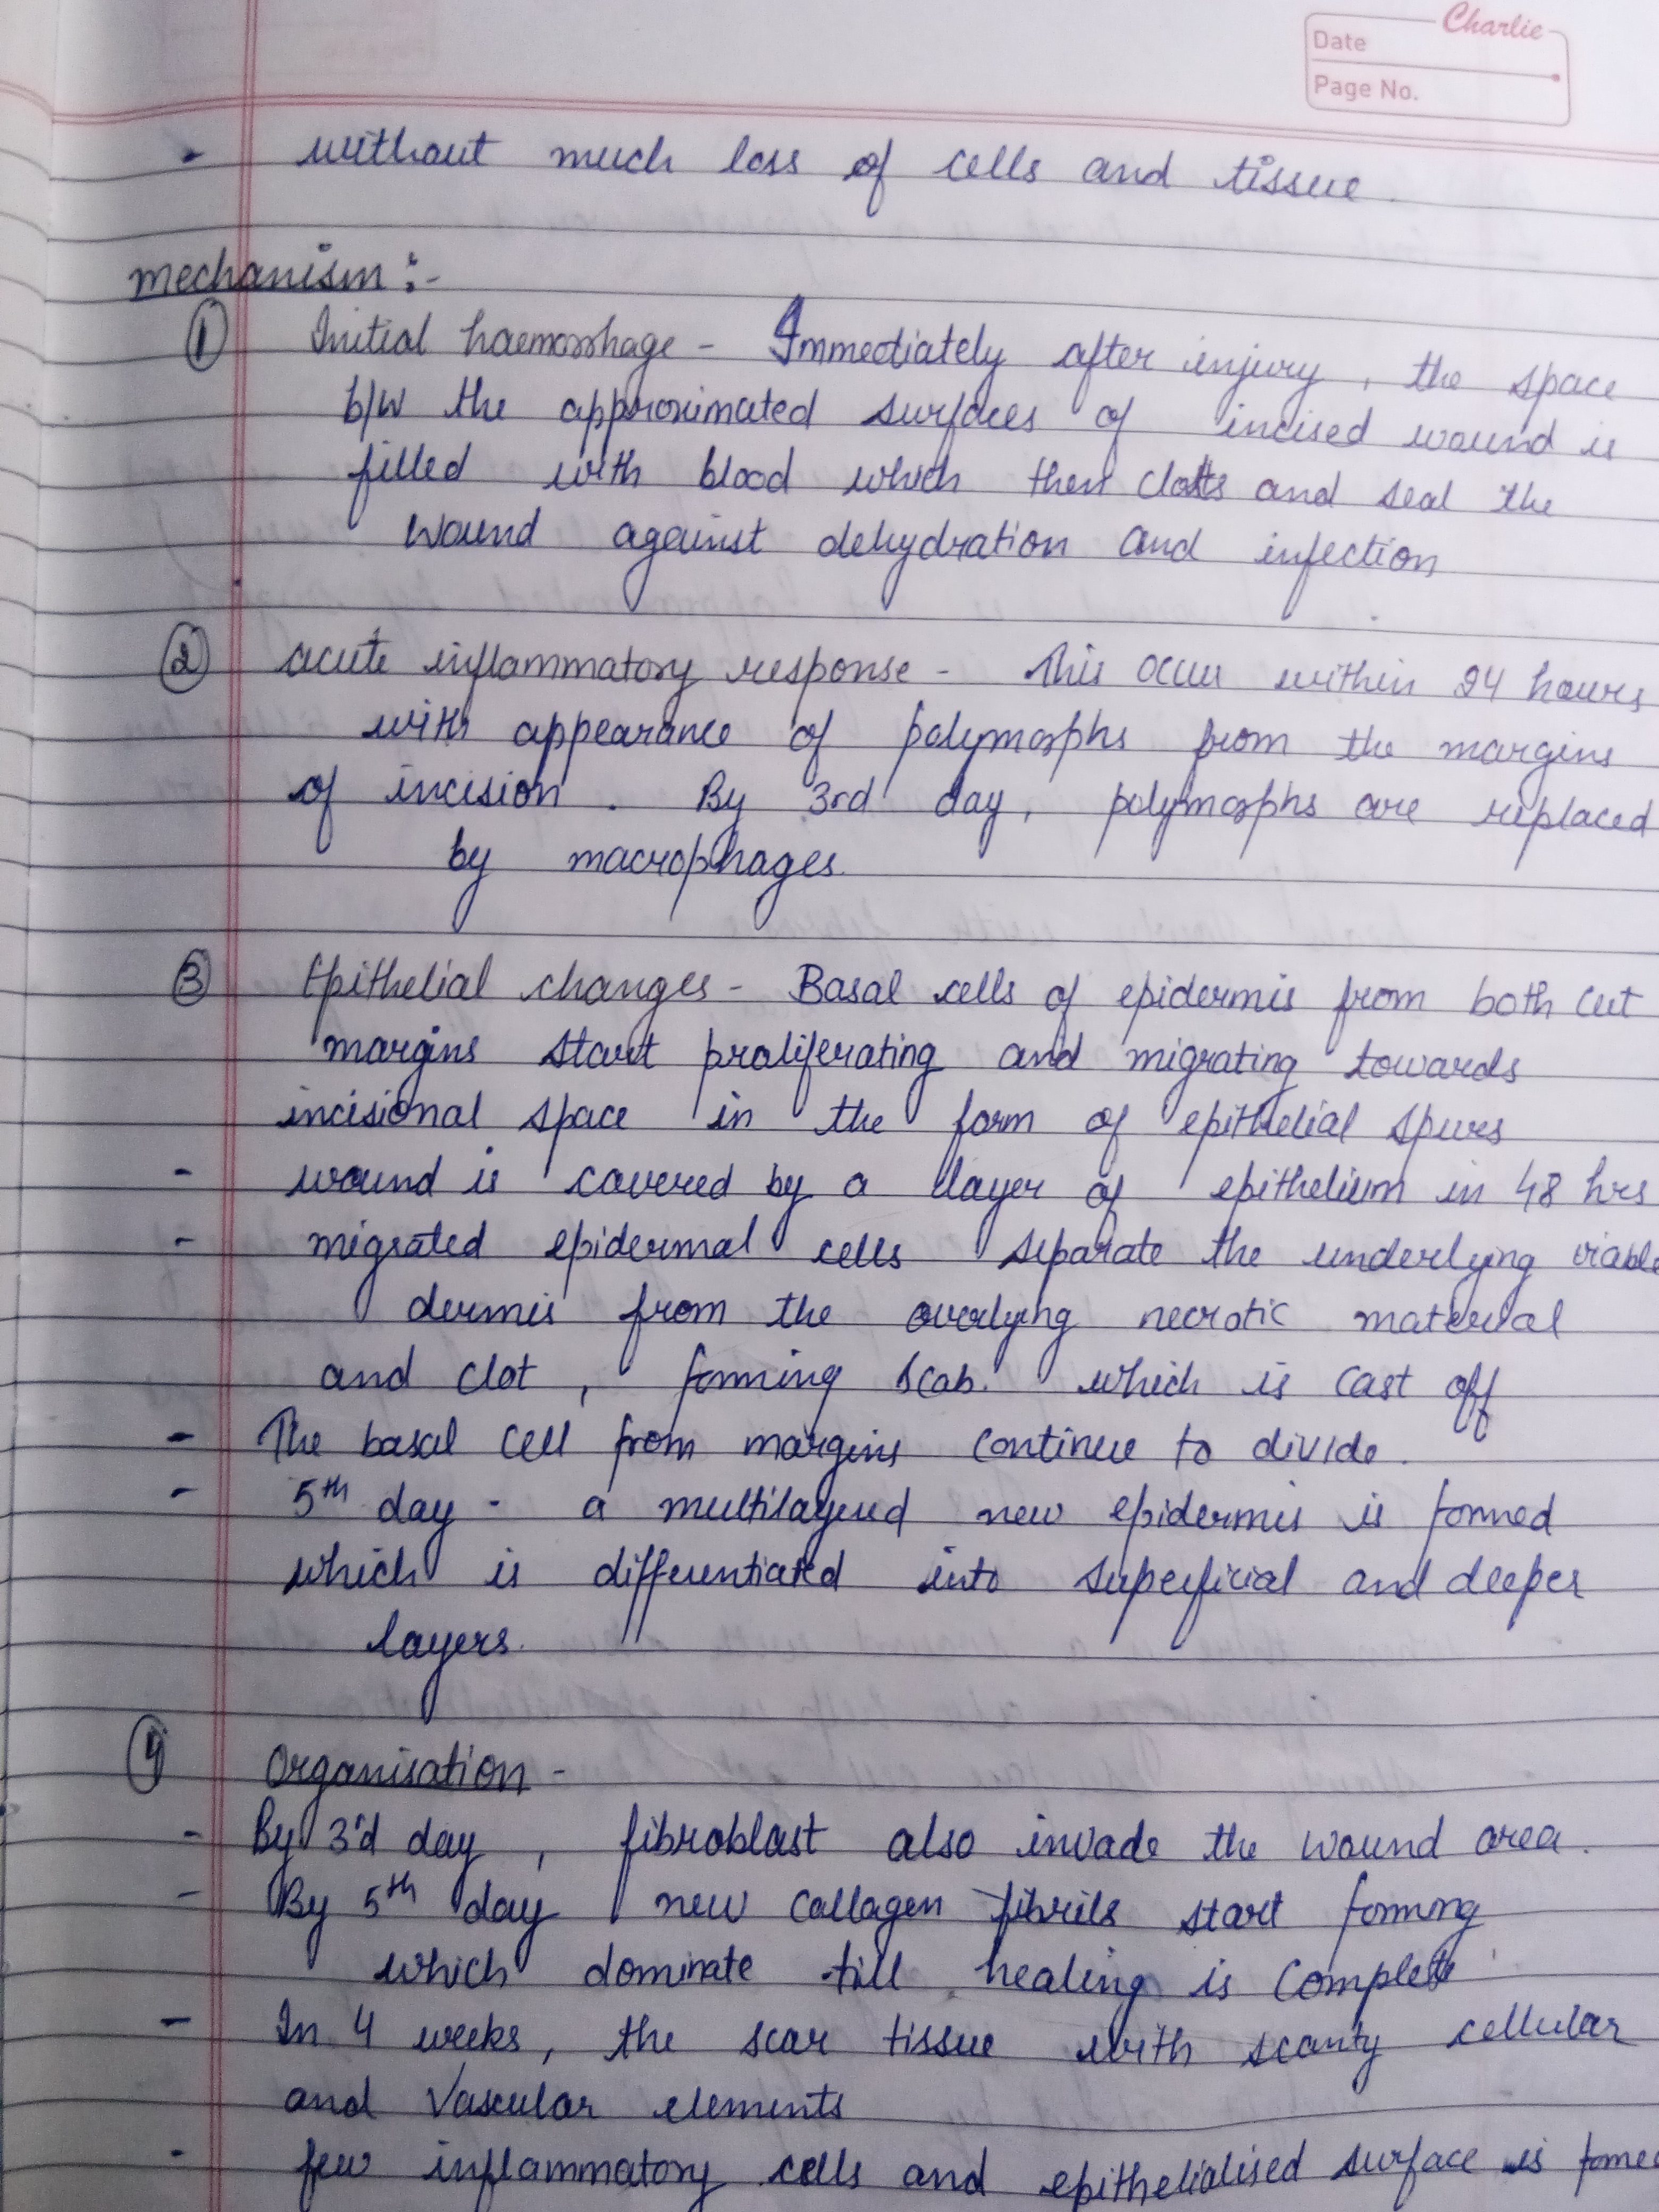 Charlie
Date
Page No.
- without much loss of cells and tissue.
mechanism :-
① Initial haemorrhage - Immediately after injury, the space
b/w the approximated surfaces of incised wound is
filled with blood which then clotts and seal the
wound against dehydration and infection
② acute inflammatory response - This occur within 24 hours
with appearance of polymorphs from the margins
of incision. By 3rd day, polymorphs are replaced
by macrophages.
③ Epithelial changes - Basal cells of epidermis from both cut
margins start proliferating and migrating towards
incisional space in the form of epithelial spurs
- wound is covered by a layer of epithelium in 48 hrs
- migrated epidermal cells separate the underlying viable
dermis from the overlying necrotic material
and clot, forming scab. which is cast off
- The basal cell from margins continue to divide.
- 5th day - a multilayered new epidermis is formed
which is differentiated into superficial and deeper
layers.
④ Organisation -
- By 3rd day, fibroblast also invade the wound area.
- By 5th day new collagen fibrils start forming
which dominate till healing is complete
- In 4 weeks, the scar tissue with scanty cellular
and vascular elements
- few inflammatory cells and epithelialised surface is formed